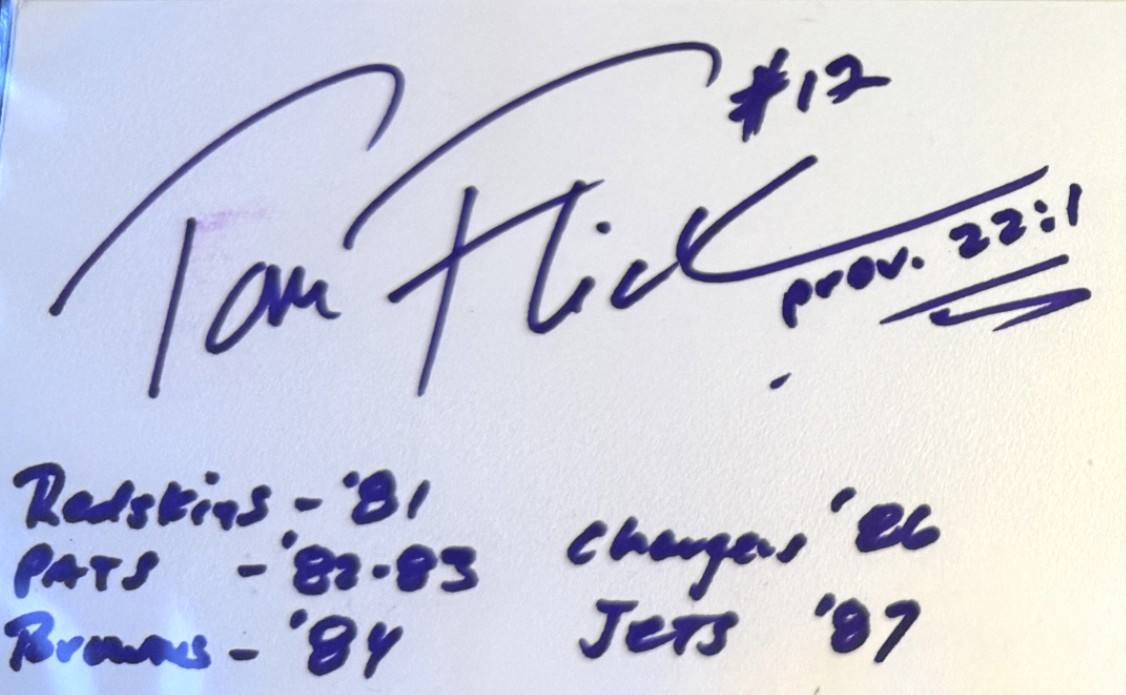 Tom Flick #12
prov. 22:1
Redskins - '81
PATS - '82-83
Browns - '84
Chargers '86
JETS '87